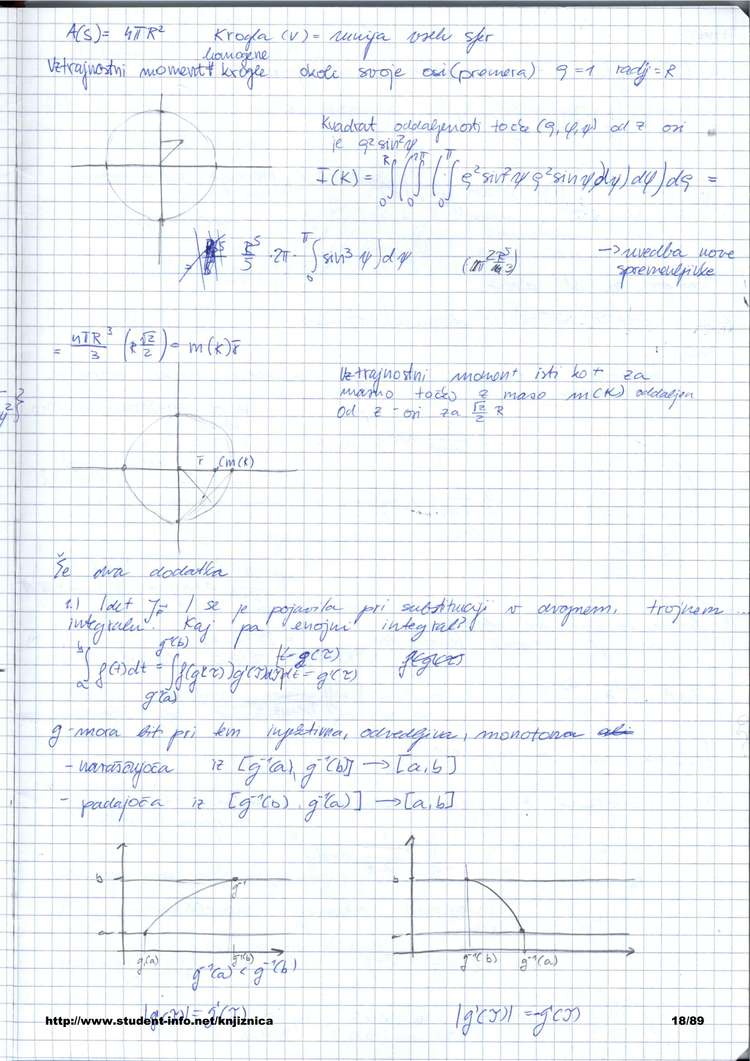 A(S) = 4πR² Krogla (V) = unija vseh sfer
Vztrajnostni moment homogene krogle okoli svoje osi (premera) ρ = 1 radij = R
Kvadrat oddaljenosti točke (ρ, φ, ψ) od z osi
je ρ² sin² ψ
I(K) = ∫₀^R (∫₀^2π (∫₀^π ρ² sin² ψ ρ² sin ψ) dψ) dφ) dρ =
= R⁵/5 · 2π · ∫₀^π sin³ ψ) dψ
→ uvedba nove
spremenljivke
= 4πR³/3 (R √2/2) = m(K) r̄
Vztrajnostni moment isti kot za
masno točko z maso m(K) oddaljen
od z-osi za √2/2 R
r̄ (m(K)
Še dva dodatka
1.) |det J_F| se je pojavila pri substituciji v dvojnem, trojnem ...
integralu. Kaj pa enojni integral?
g⁻¹(b) t = g(τ)
∫ₐᵇ f(t)dt = ∫ f(g(τ)) g'(τ)dτ dt = g'(τ) f(g(τ)
g⁻¹(a)
g - mora bit pri tem injektivna, odvedljiva, monotona
- naraščajoča iz [g⁻¹(a), g⁻¹(b)] → [a, b]
- padajoča iz [g⁻¹(b), g⁻¹(a)] → [a, b]
b g⁻¹ b
a a
g(a) g⁻¹(b) g⁻¹(b) g⁻¹(a)
g⁻¹(a) < g⁻¹(b)
|g'(τ)| = g'(τ) |g'(τ)| = -g'(τ)
http://www.student-info.net/knjiznica 18/89